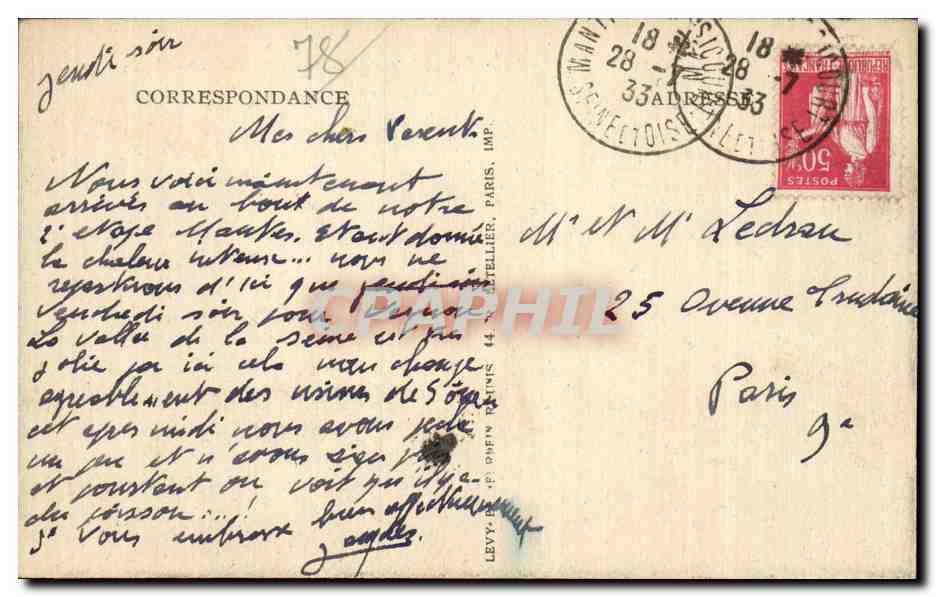 jeudi soir
78
CORRESPONDANCE
ADRESSE
MANTES
18
28 - 7
33
SEINE ET OISE
18
28 - 7
33
SEINE ET OISE
REPUBLIQUE FRANÇAISE
50c
POSTES
Mes chers Parents
Nous voici maintenant
arrivés au bout de notre
étape Mantes. Etant donné
la chaleur intense... nous ne
repartirons d'ici que jeudi soir
vendredi soir pour
La vallée de la Seine est très
jolie par ici cela nous change
agréablement des usines de
cet après midi nous avons pêché
un peu et n'avons rien pris
et pourtant on voit qu'il y a
du poisson...!
Je vous embrasse bien affectueusement
Mr et Me Ledrau
25 Avenue Trudaine
Paris
9e
LEVY ET NEURDEIN REUNIS, 44, LETELLIER, PARIS, IMP.
CPAPHIL